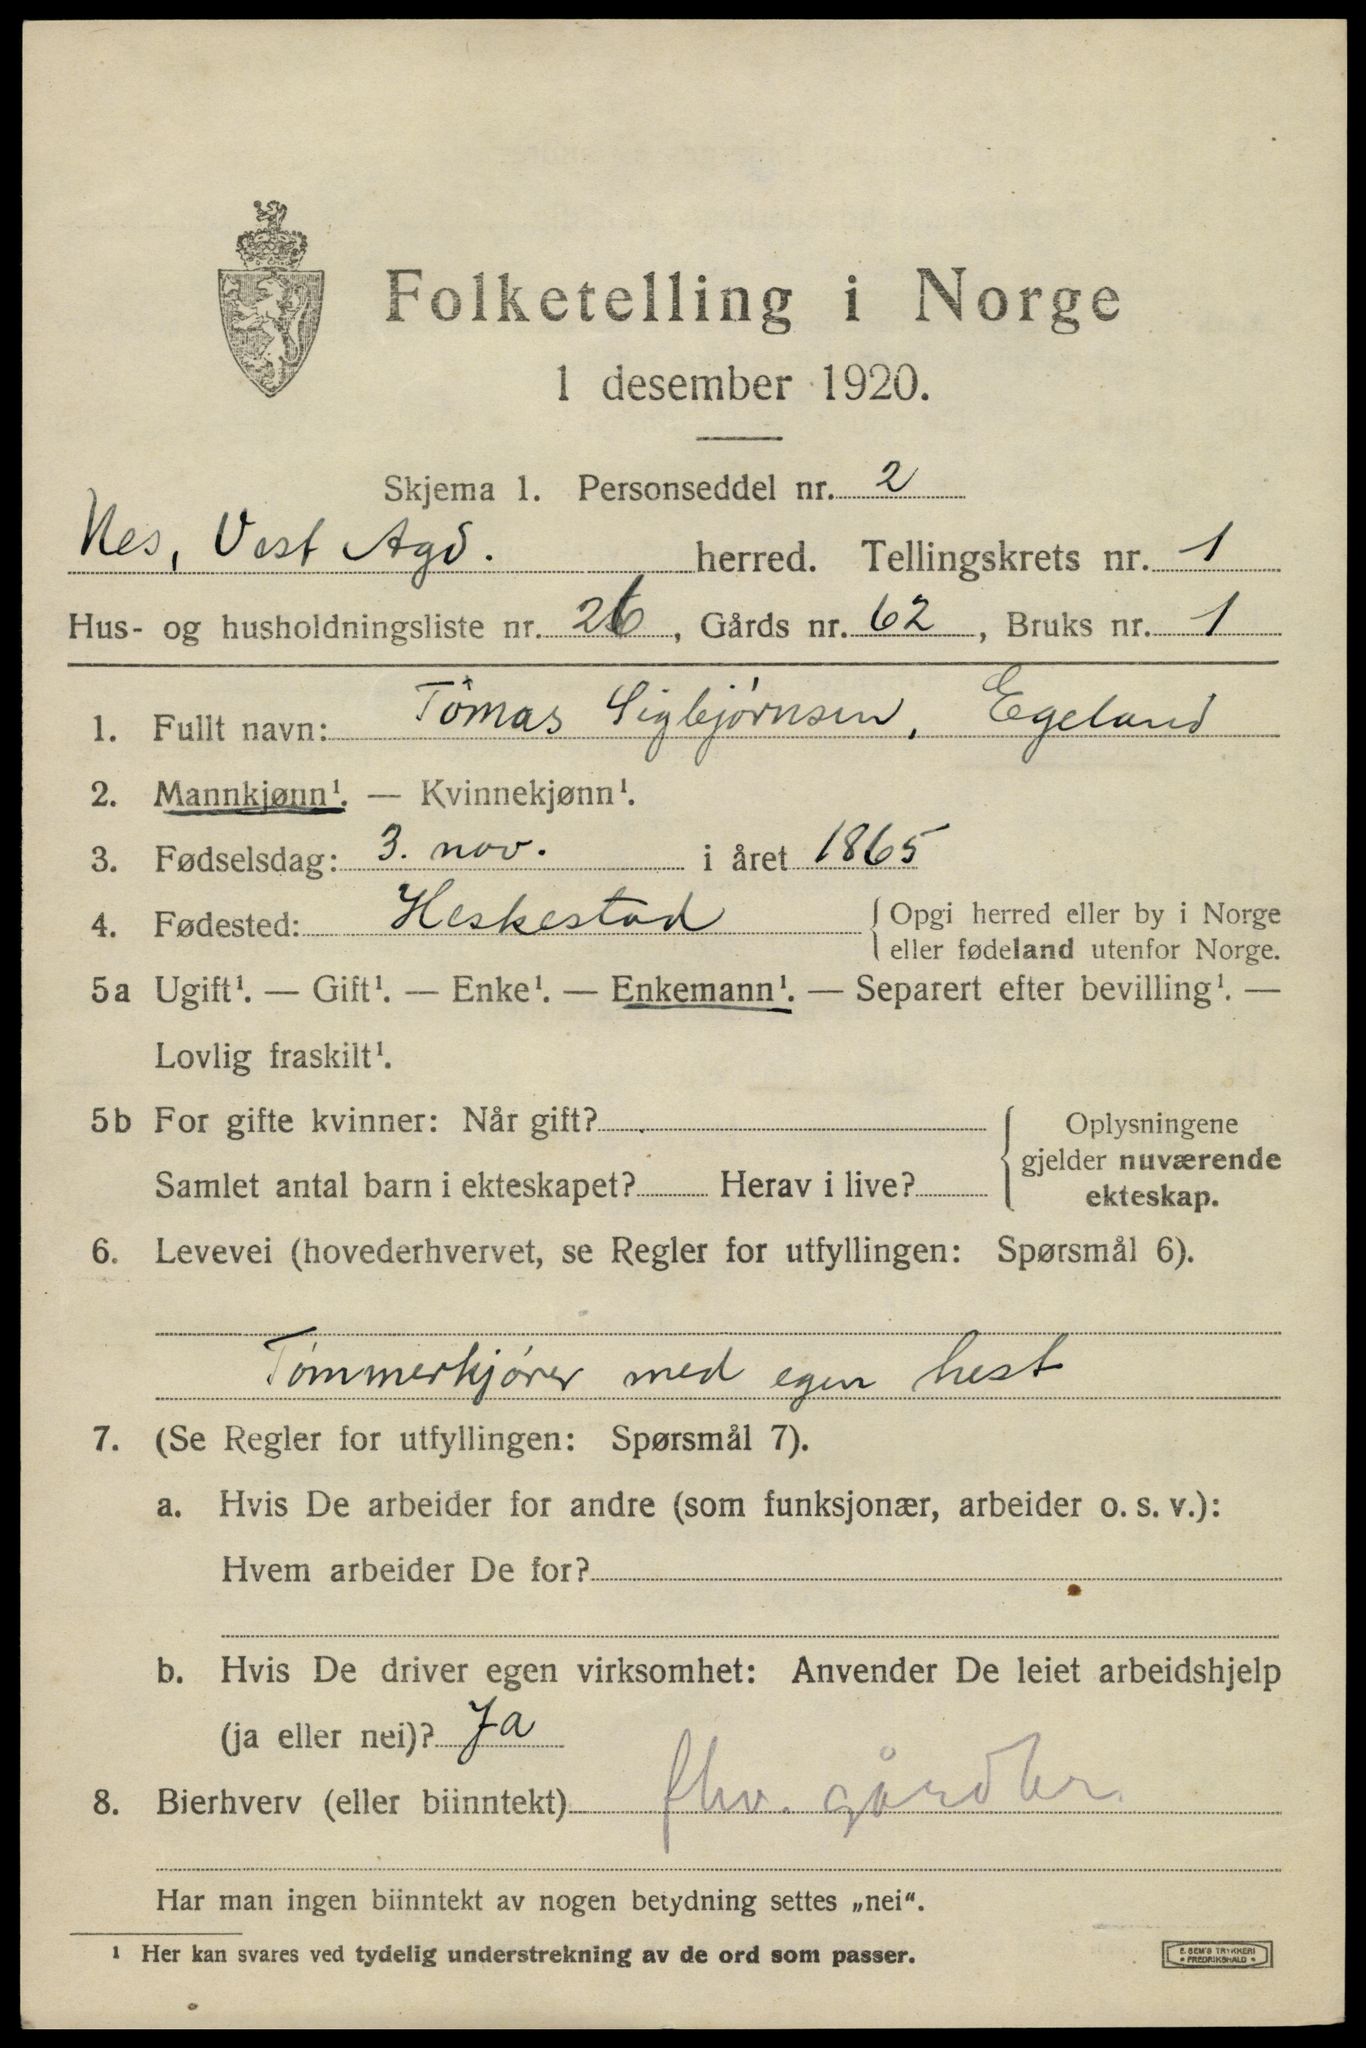 Folketelling i Norge
1 desember 1920.
Skjema 1. Personseddel nr. 2
Nes, Vest Agd. herred. Tellingskrets nr. 1
Hus- og husholdningsliste nr. 26, Gårds nr. 62, Bruks nr. 1
1. Fullt navn: Tomas Sigbjørnsen, Egeland
2. Mannkjønn¹. — Kvinnekjønn¹.
3. Fødselsdag: 3. nov. i året 1865
4. Fødested: Heskestad { Opgi herred eller by i Norge
eller fødeland utenfor Norge.
5a Ugift¹. — Gift¹. — Enke¹. — Enkemann¹. — Separert efter bevilling¹. —
Lovlig fraskilt¹.
5b For gifte kvinner: Når gift?
Samlet antal barn i ekteskapet? Herav i live?
Oplysningene
gjelder nuværende
ekteskap.
6. Levevei (hovederhvervet, se Regler for utfyllingen: Spørsmål 6).
Tømmerkjører med egen hest
7. (Se Regler for utfyllingen: Spørsmål 7).
a. Hvis De arbeider for andre (som funksjonær, arbeider o. s. v.):
Hvem arbeider De for?
b. Hvis De driver egen virksomhet: Anvender De leiet arbeidshjelp
(ja eller nei)? Ja
8. Bierhverv (eller biinntekt)
Har man ingen biinntekt av nogen betydning settes „nei“.
¹ Her kan svares ved tydelig understrekning av de ord som passer.
E. SEM'S TRYKKERI
FREDRIKSHALD